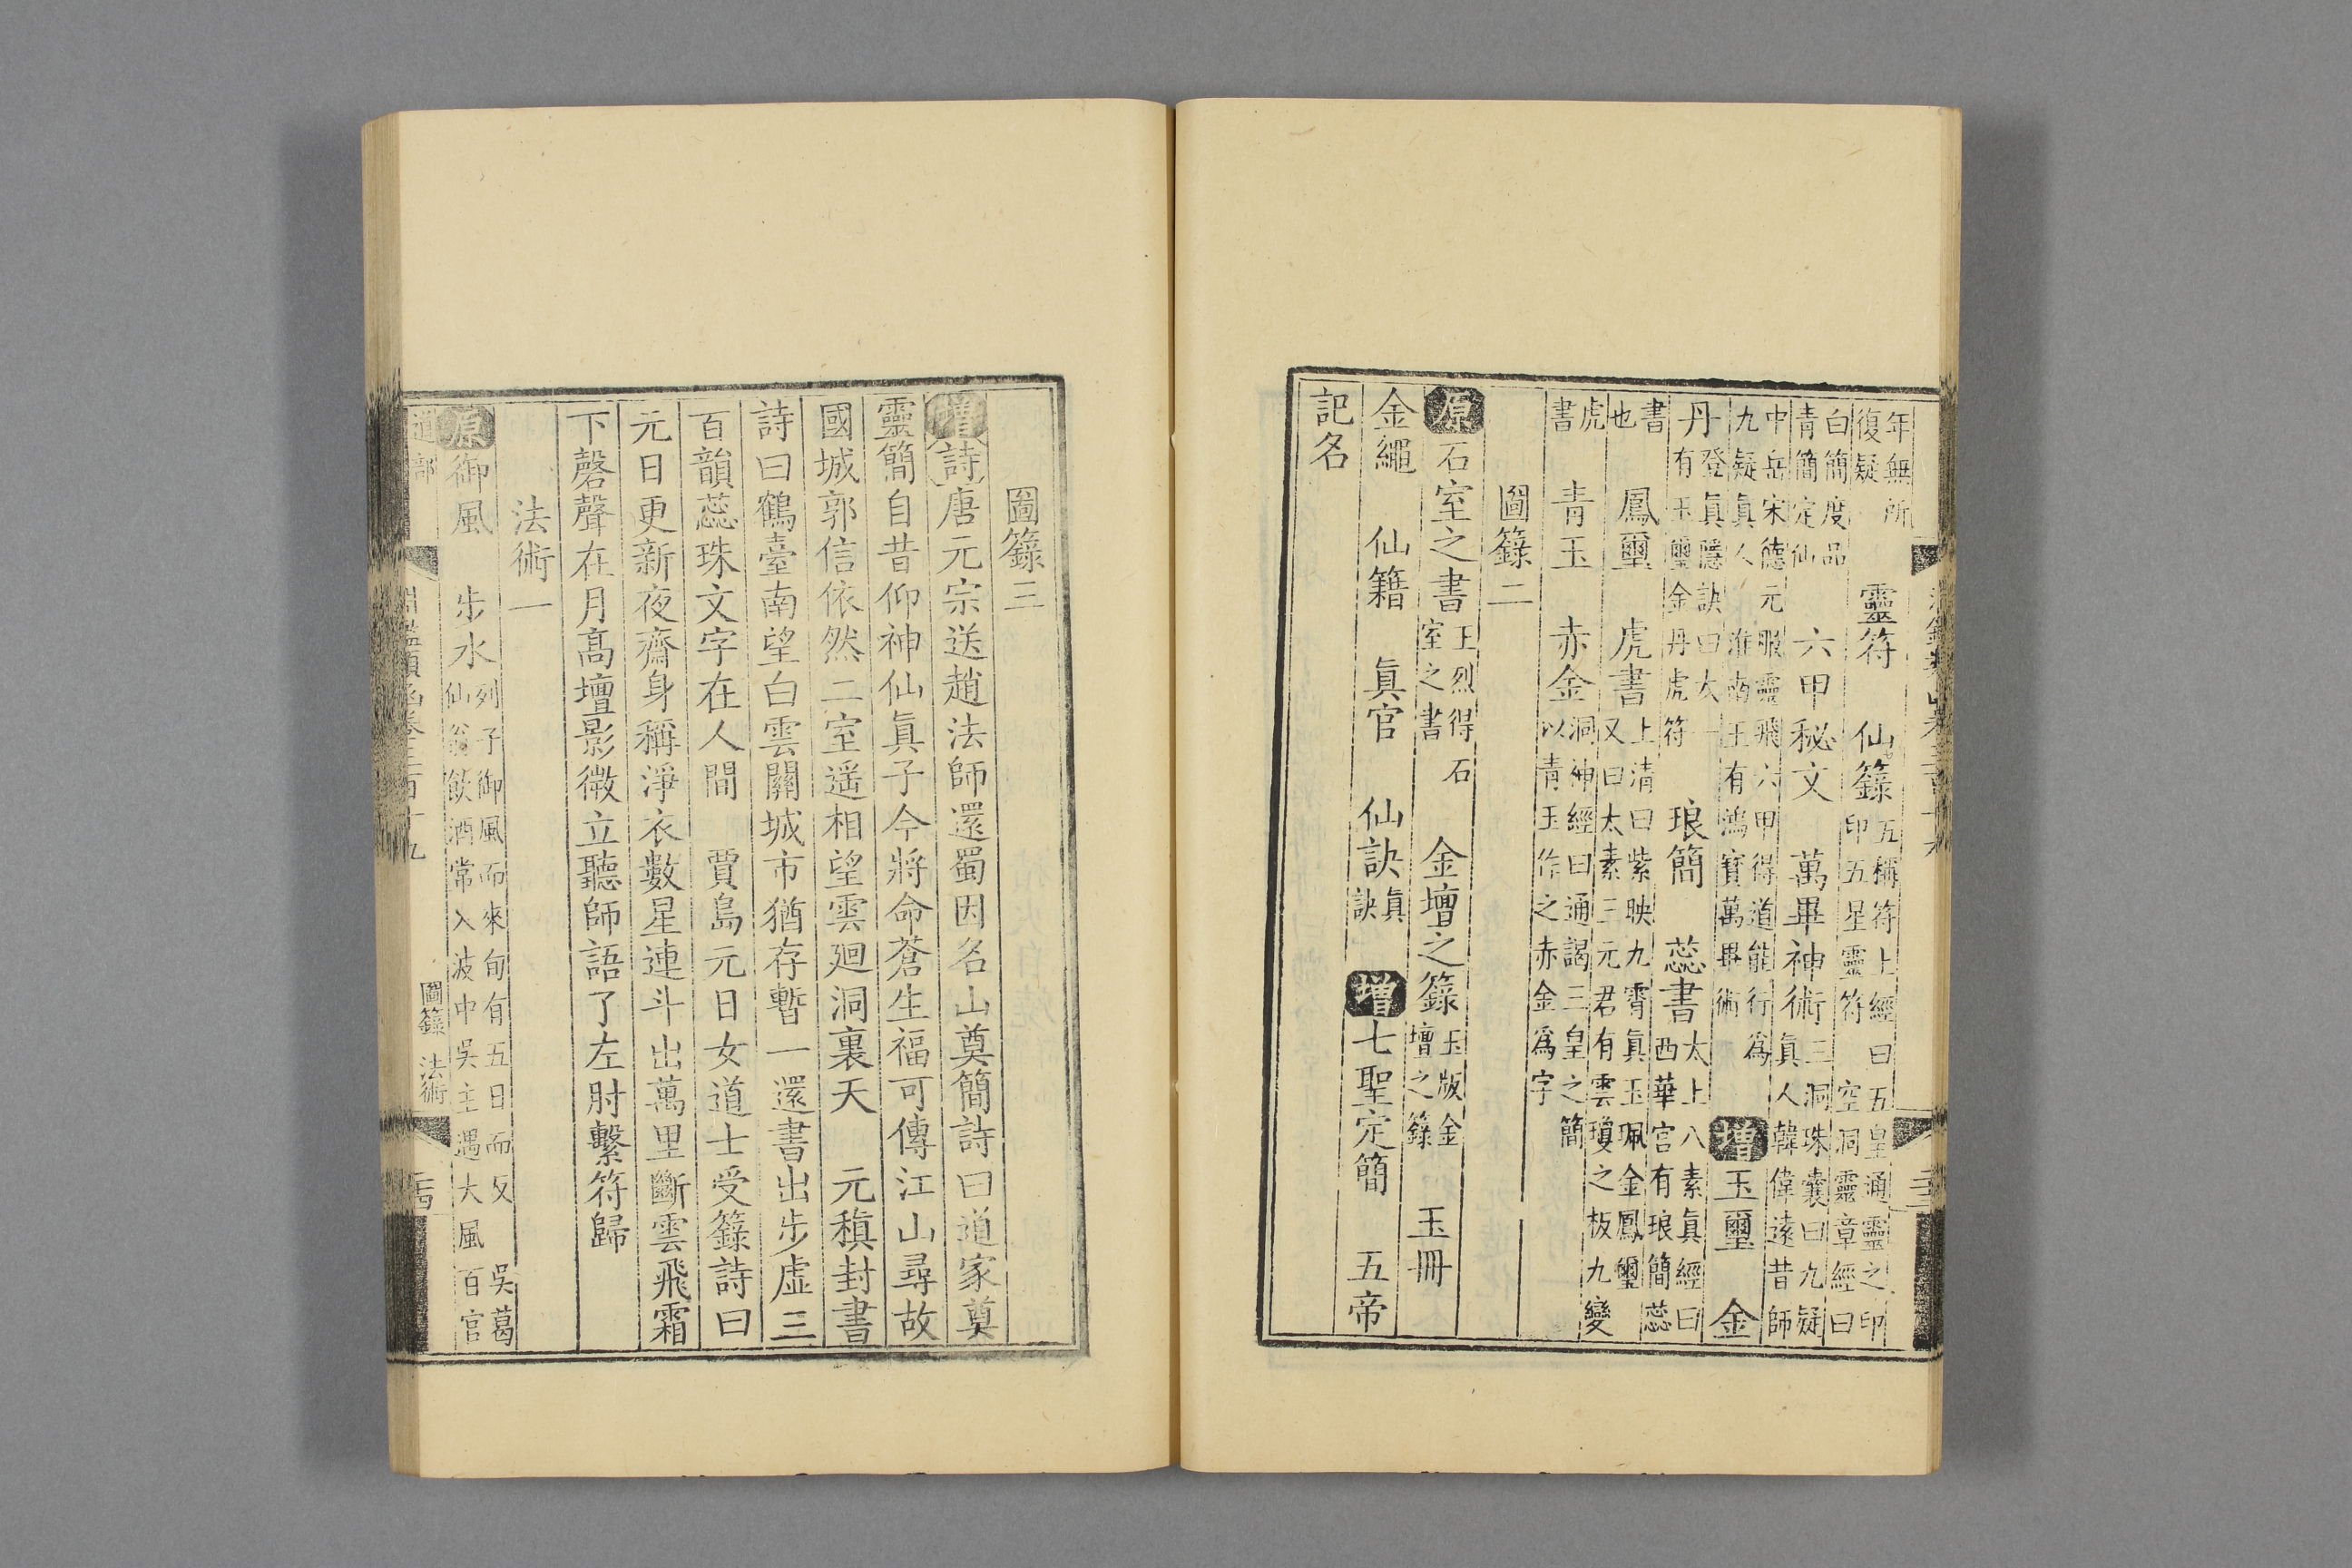 年無所復疑　靈符　仙籙五稱符上經曰五皇通靈之印印五星靈符　空洞靈章經曰
白簡度品青簡定仙　六甲秘文　萬畢神術三洞珠囊曰九疑眞人韓偉遠昔師
中岳宋德元服靈飛六甲得道能行爲九疑眞人　淮南王有鴻寶萬畢術　增玉璽　金
丹登眞隱訣曰太一有玉璽金丹虎符　琅簡　蕊書太上八素眞經曰西華宮有琅簡蕊
書也　鳳璽　虎書上清曰紫映九霄眞玉珮金鳳璽又曰太素三元君有雲瓊之板九變
虎書　青玉　赤金洞神經曰通謁三皇之簡以青玉作之赤金爲字
圖籙二
原石室之書王烈得石室之書　金壇之籙玉版金壇之籙　玉冊
金繩　仙籍　眞官　仙訣眞訣　增七聖定簡　五帝
記名
圖籙三
增詩唐元宗送趙法師還蜀因名山奠簡詩曰道家奠
靈簡自昔仰神仙眞子今將命蒼生福可傳江山尋故
國城郭信依然二室遥相望雲廻洞裏天　元稹封書
詩曰鶴臺南望白雲關城市猶存暫一還書出步虛三
百韻蕊珠文字在人間　賈島元日女道士受籙詩曰
元日更新夜齋身稱淨衣數星連斗出萬里斷雲飛霜
下磬聲在月高壇影微立聽師語了左肘繫符歸
法術一
原御風　步水列子御風而來旬有五日而反　吳葛仙翁飲酒常入波中吳主遇大風百官
道部　淵鑑類函卷三百十九　圖籙　法術